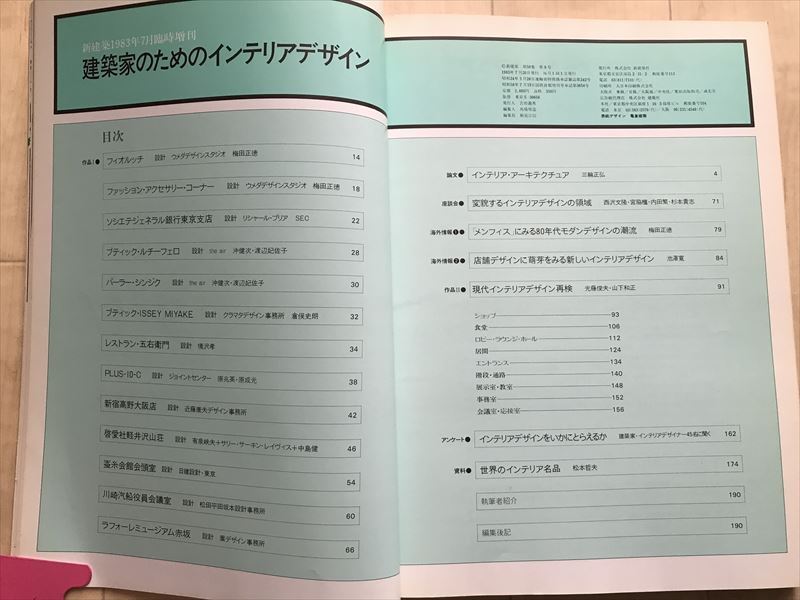 新建築1983年7月臨時増刊
建築家のためのインテリアデザイン
目次
作品Ⅰ● フィオルッチ 設計 ウメダデザインスタジオ 梅田正徳 14
ファッション・アクセサリー・コーナー 設計 ウメダデザインスタジオ 梅田正徳 18
ソシエテジェネラル銀行東京支店 設計 リシャール・ブリア SEC 22
ブティック・ルチーフェロ 設計 the air 沖健次・渡辺妃佐子 28
パーラー・シンジク 設計 the air 沖健次・渡辺妃佐子 30
ブティック・ISSEY MIYAKE 設計 クラマタデザイン事務所 倉俣史朗 32
レストラン・五右衛門 設計 境沢孝 34
PLUS・ID-C 設計 ジョイントセンター 原兆英・原成光 38
新宿高野大阪店 設計 近藤康夫デザイン事務所 42
啓愛社軽井沢山荘 設計 有泉峡夫+サリー・サーキン・レイヴィス+中島健 46
蚕糸会館会頭室 設計 日建設計・東京 54
川崎汽船役員会議室 設計 松田平田坂本設計事務所 60
ラフォーレミュージアム赤坂 設計 葉デザイン事務所 66
論文● インテリア・アーキテクチュア 三輪正弘 4
座談会● 変貌するインテリアデザインの領域 西沢文隆・宮脇檀・内田繁・杉本貴志 71
海外情報❶● 「メンフィス」にみる80年代モダンデザインの潮流 梅田正徳 79
海外情報❷● 店舗デザインに萌芽をみる新しいインテリアデザイン 池澤寛 84
作品Ⅱ● 現代インテリアデザイン再検 光藤俊夫・山下和正 91
ショップ 93
食堂 106
ロビー・ラウンジ・ホール 112
居間 124
エントランス 134
階段・通路 140
展示室・教室 148
事務室 152
会議室・応接室 156
アンケート● インテリアデザインをいかにとらえるか 建築家・インテリアデザイナー45名に聞く 162
資料● 世界のインテリア名品 松本哲夫 174
執筆者紹介 190
編集後記 190